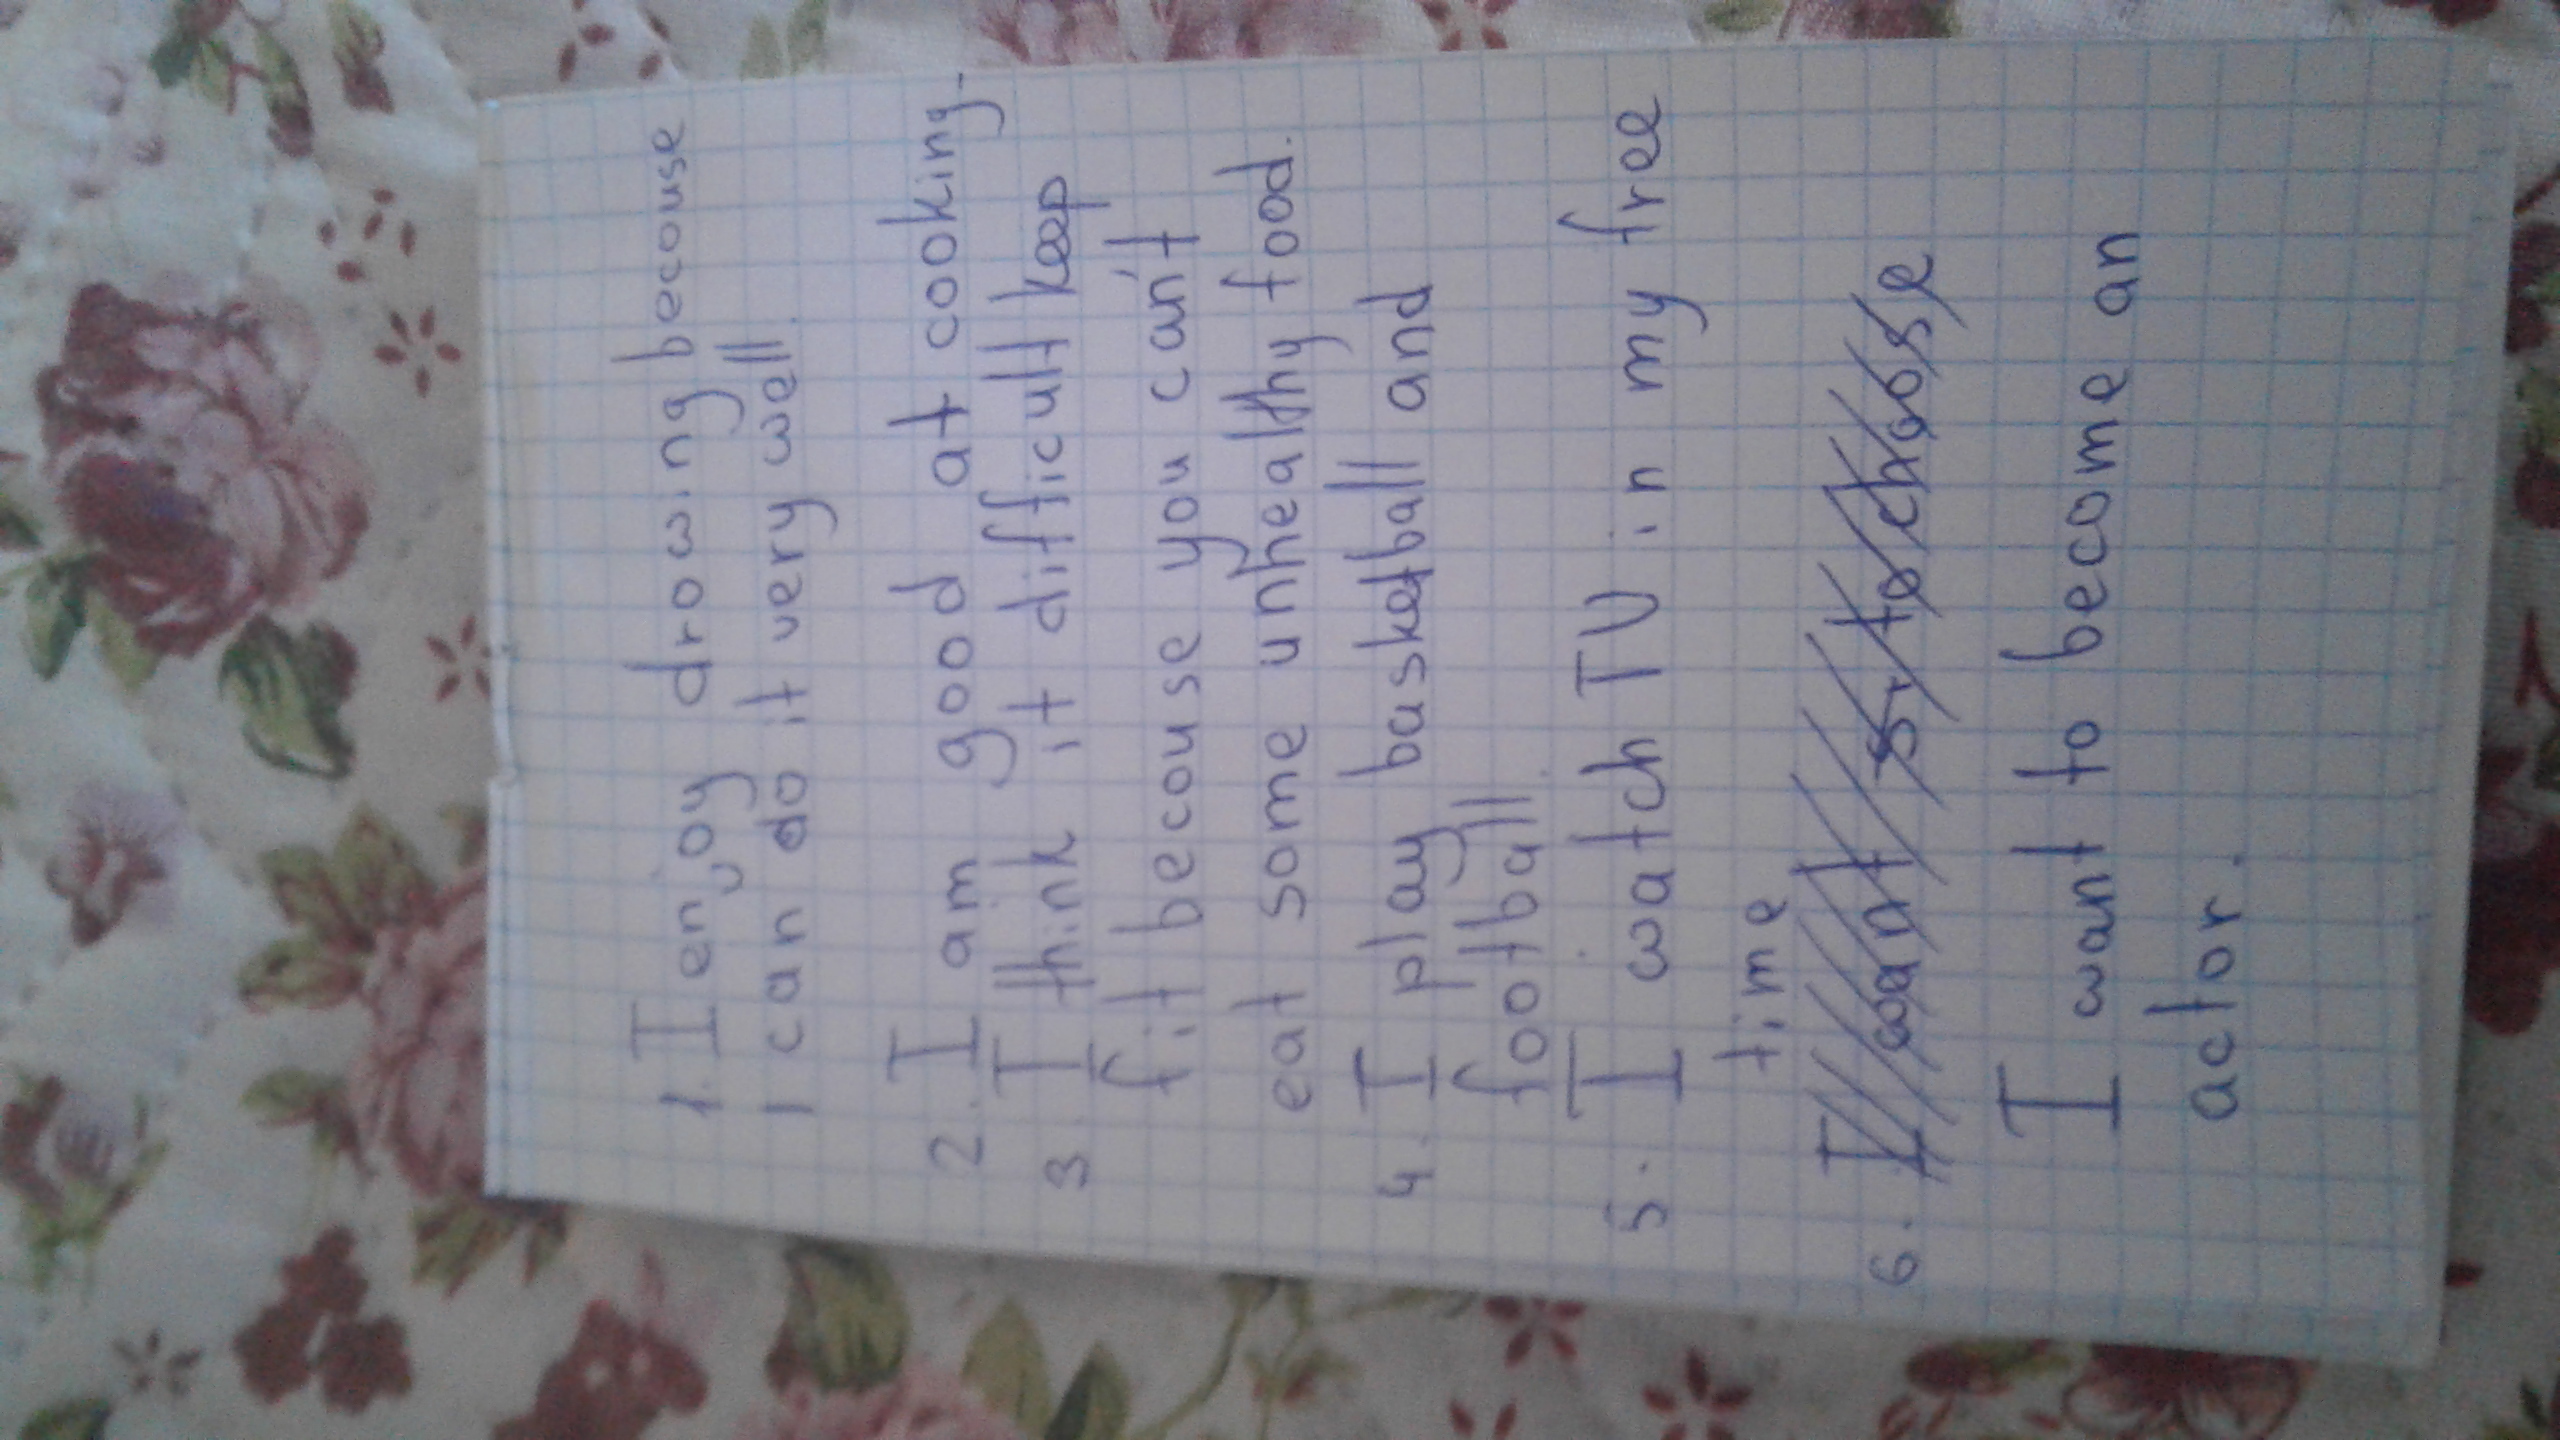 1. I enjoy drowing becouse
I can do it very well.
2. I am good at cooking.
3. I think it difficult keep
fit becouse you can't
eat some unhealthy food.
4. I play basketball and
football.
5. I watch TV in my free
time
6. I want to choose
I want to become an
actor.